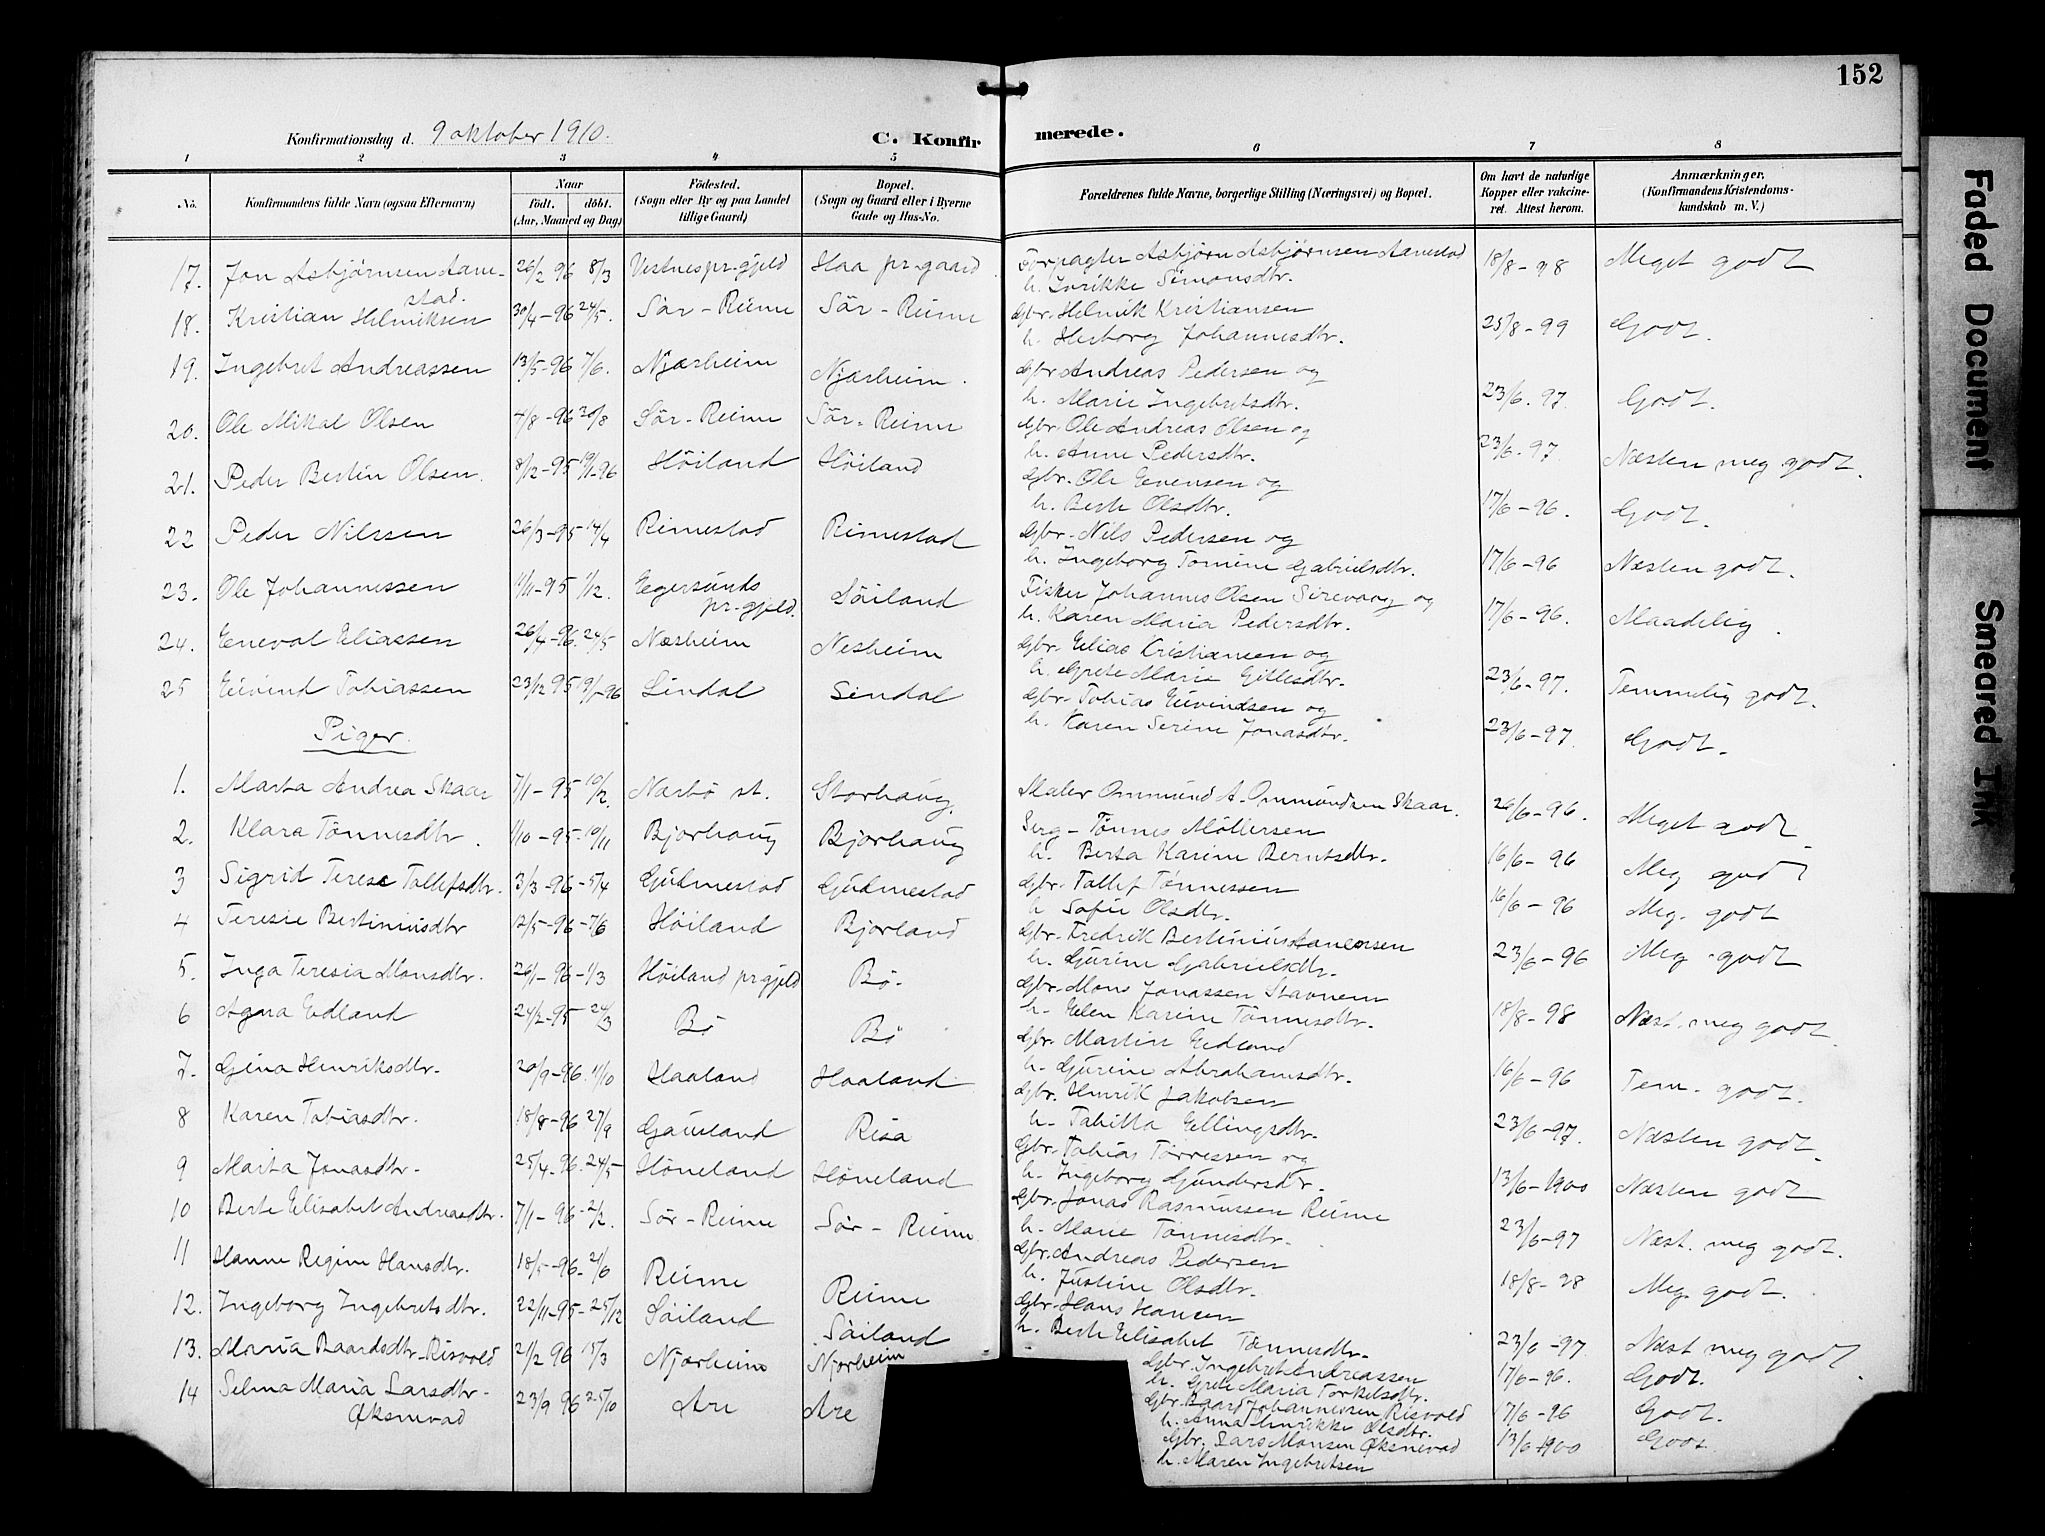 152
Konfirmationsdag d. 9 oktober 1910.
C. Konfirmerede.
1 2 3 4 5 6 7 8
No. Konfirmandens fulde Navn (ogsaa Efternavn) Naar født. døbt. (Aar, Maaned og Dag) Födested. (Sogn eller By og paa Landet tillige Gaard) Bopæl. (Sogn og Gaard eller i Byerne Gade og Hus-No. Forældrenes fulde Navne, borgerlige Stilling (Næringsvei) og Bopæl. Om havt de naturlige Kopper eller vakcineret. Attest herom. Anmærkninger. (Konfirmandens Kristendomskundskab m. V.)
17. Jon Asbjørnsen Aanestad. 26/2 96 8/3 Vestnes pr.gjeld Haa pr.gaard Forpagter Asbjørn Asbjørnsen Aanestad 18/8-98 Meget godt
h. Inrikke Simonsdtr.
18. Kristian Helmiksen 30/4-96 24/5. Sør-Reime Sör-Reime Gbr. Helmik Kristiansen
h. Herborg Johannesdtr. 25/8-99 Godt.
19. Ingebret Andreassen 13/5-96 7/6. Njærheim Njærheim. Gbr Andreas Pedersen og
h. Marie Ingebretsdtr. 23/6-97. Godt.
20. Ole Mikal Olsen 4/8-96 30/8 Sör-Reime Sör-Reime Gbr. Ole Andreas Olsen og
h. Anne Pedersdtr. 23/6-97. Næsten meg godt.
21. Peder Bertin Olsen. 8/12-95 19/1-96 Höiland Höiland Gbr. Ole Evensen og
h. Berte Olsdtr. 17/6-96. Godt.
22 Peder Nilssen 26/3-95 14/4 Rimestad Rimestad Gbr. Nils Pedersen og
h. Ingeborg Tomine Gabrielsdtr. 17/6-96 Næsten godt.
23. Ole Johannessen 11/11-95 1/12. Egersunds pr.gjeld. Söiland Fisker Johannes Olsen Sirevaag og
h. Karen Maria Pedersdtr. 17/6-96. Maadelig.
24. Eneval Eliassen 26/4-96. 24/5 Næsheim Nesheim Gbr. Elias Kristiansen og
h. Grete Marie Gitlesdtr. 23/6-97. Temmelig godt.
25 Eivind Tobiassen 23/12 95 19/1-96 Lindal Lindal Gbr. Tobias Eivindsen og
h. Karen Serine Jonasdtr. 23/6-97. Godt.
Piger.
1. Marta Andrea Skaar 7/1-95 10/2. Nærbö st. Storhaug. Maler Ommund A. Ommundsen Skaar. 26/6-96. Meget godt
2. Klara Tönnesdtr. 1/10-95-10/11 Bjorhaug Bjorhaug Serg-Tönnes Möllersen
h. Berta Karine Berntsdtr. 16/6-96 Meg godt
3 Sigrid Terese Tollefsdtr. 3/3-96-5/4 Gudmestad Gudmestad Gbr. Tollef Tönnessen
h Sofie Olsdtr. 16/6-96 Meg. godt
4 Teresie Bertiniusdtr 12/5-96-7/6 Höiland Bjorland Gbr. Fredrik Bertinius
h. Gurine Gabrielsdtr. 23/6-96 Meg. godt
5. Inga Teresia Monsdtr. 26/1-96-1/3 Höiland pr.gjeld Bö. Gbr. Mons Jonassen Stavnem
h. Elen Karine Tönnesdtr. 18/8-98 Næst. meg godt.
6 Agna Edland 24/2-95 24/3 Bö Bö Gbr. Martin Edland
h. Gurine Abrahamsdtr. 16/6-96 Tem. godt.
7. Gina Henriksdtr. 20/9-96. 11/10 Haaland Haaland Gbr. Henrik Jakobsen
h. Tabitta Ellingsdtr. 23/6-97. Næsten godt.
8 Karen Tobiasdtr. 18/8-96 27/9 Gausland Risa Gbr. Tobias Törressen og
h. Ingeborg Gundersdtr. 13/6-1900 Næsten godt
9 Marta Jonasdtr. 25/4-96. 24/5 Höneland Höneland Gbr. Jonas Rasmussen Reime
h. Marie Tönnesdtr. 23/6-97 Næst. meg godt.
10 Berte Elisabet Andreasdtr. 7/1-96-2/2. Sör-Reime Sör-Reime Gbr. Andreas Pedersen
h. Justine Olsdtr. 18/8-98 Meg. godt.
11 Hanne Regine Hansdtr. 18/5-96-21/6 Reime Reime Gbr. Hans Hansen
h. Berte Elisabet Tönnesdtr. 23/6-97 Næst meg godt
12. Ingeborg Ingebretsdtr. 22/11-95-25/12 Söiland Söiland Gbr. Ingebret Andreassen
h. Grete Maria Torkelsdtr. 17/6-96. Godt.
13. Maria Baardsdtr. Risvold 21/2 96 15/3 Njærheim Njorheim Gbr. Baard Johannessen Risvold
h. Anna Inrikke Olsdtr. 17/6-96 Godt.
14 Selma Maria Larsdtr. Øksnevad 23/9 96 25/10 Are Are Gbr. Lars Monsen Øksnevad
h. Maren Ingebretsen 13/6 1900 Godt.
Faded Document
Smeared Ink